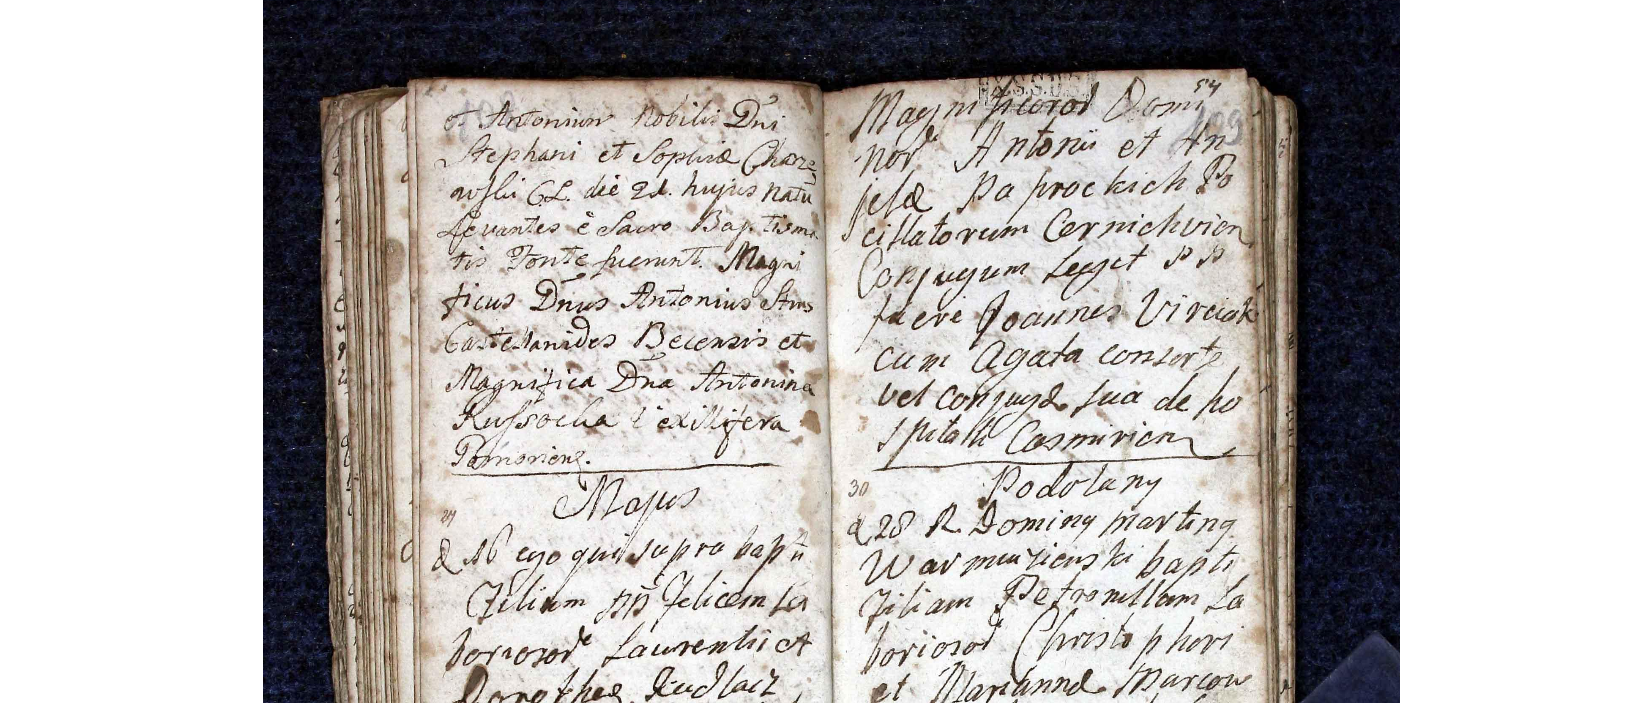 et Antonium Nobilis Dni
Stephani et Sophiæ Charze
wski C.L. die 21. hujus natu
Levantes è Sacro Baptisma
tis Fonte fuerunt. Magni
ficus Dnus Antonius
Castellanides Becensis et
Magnifica Dna Antonina
Russocka
Majus
29
d 16 ego qui supra bapti
Filium pp Felicem La
boriosor Laurentii et
Dorotheæ
54
409
Magnificoror Domi
nor Antonii et An
jelæ Paprockich Po
cillatorum Cernichvien
Conjugum Leggit PP
fuere Joannes Virciak
cum Agata consorte
vel conjuge sua de ho
spitali Casmirien
30
Podolany
d 28 R. Dominus martinus
bapti
Filiam Petronillam La
boriosor Christophori
et Mariannæ Marcow